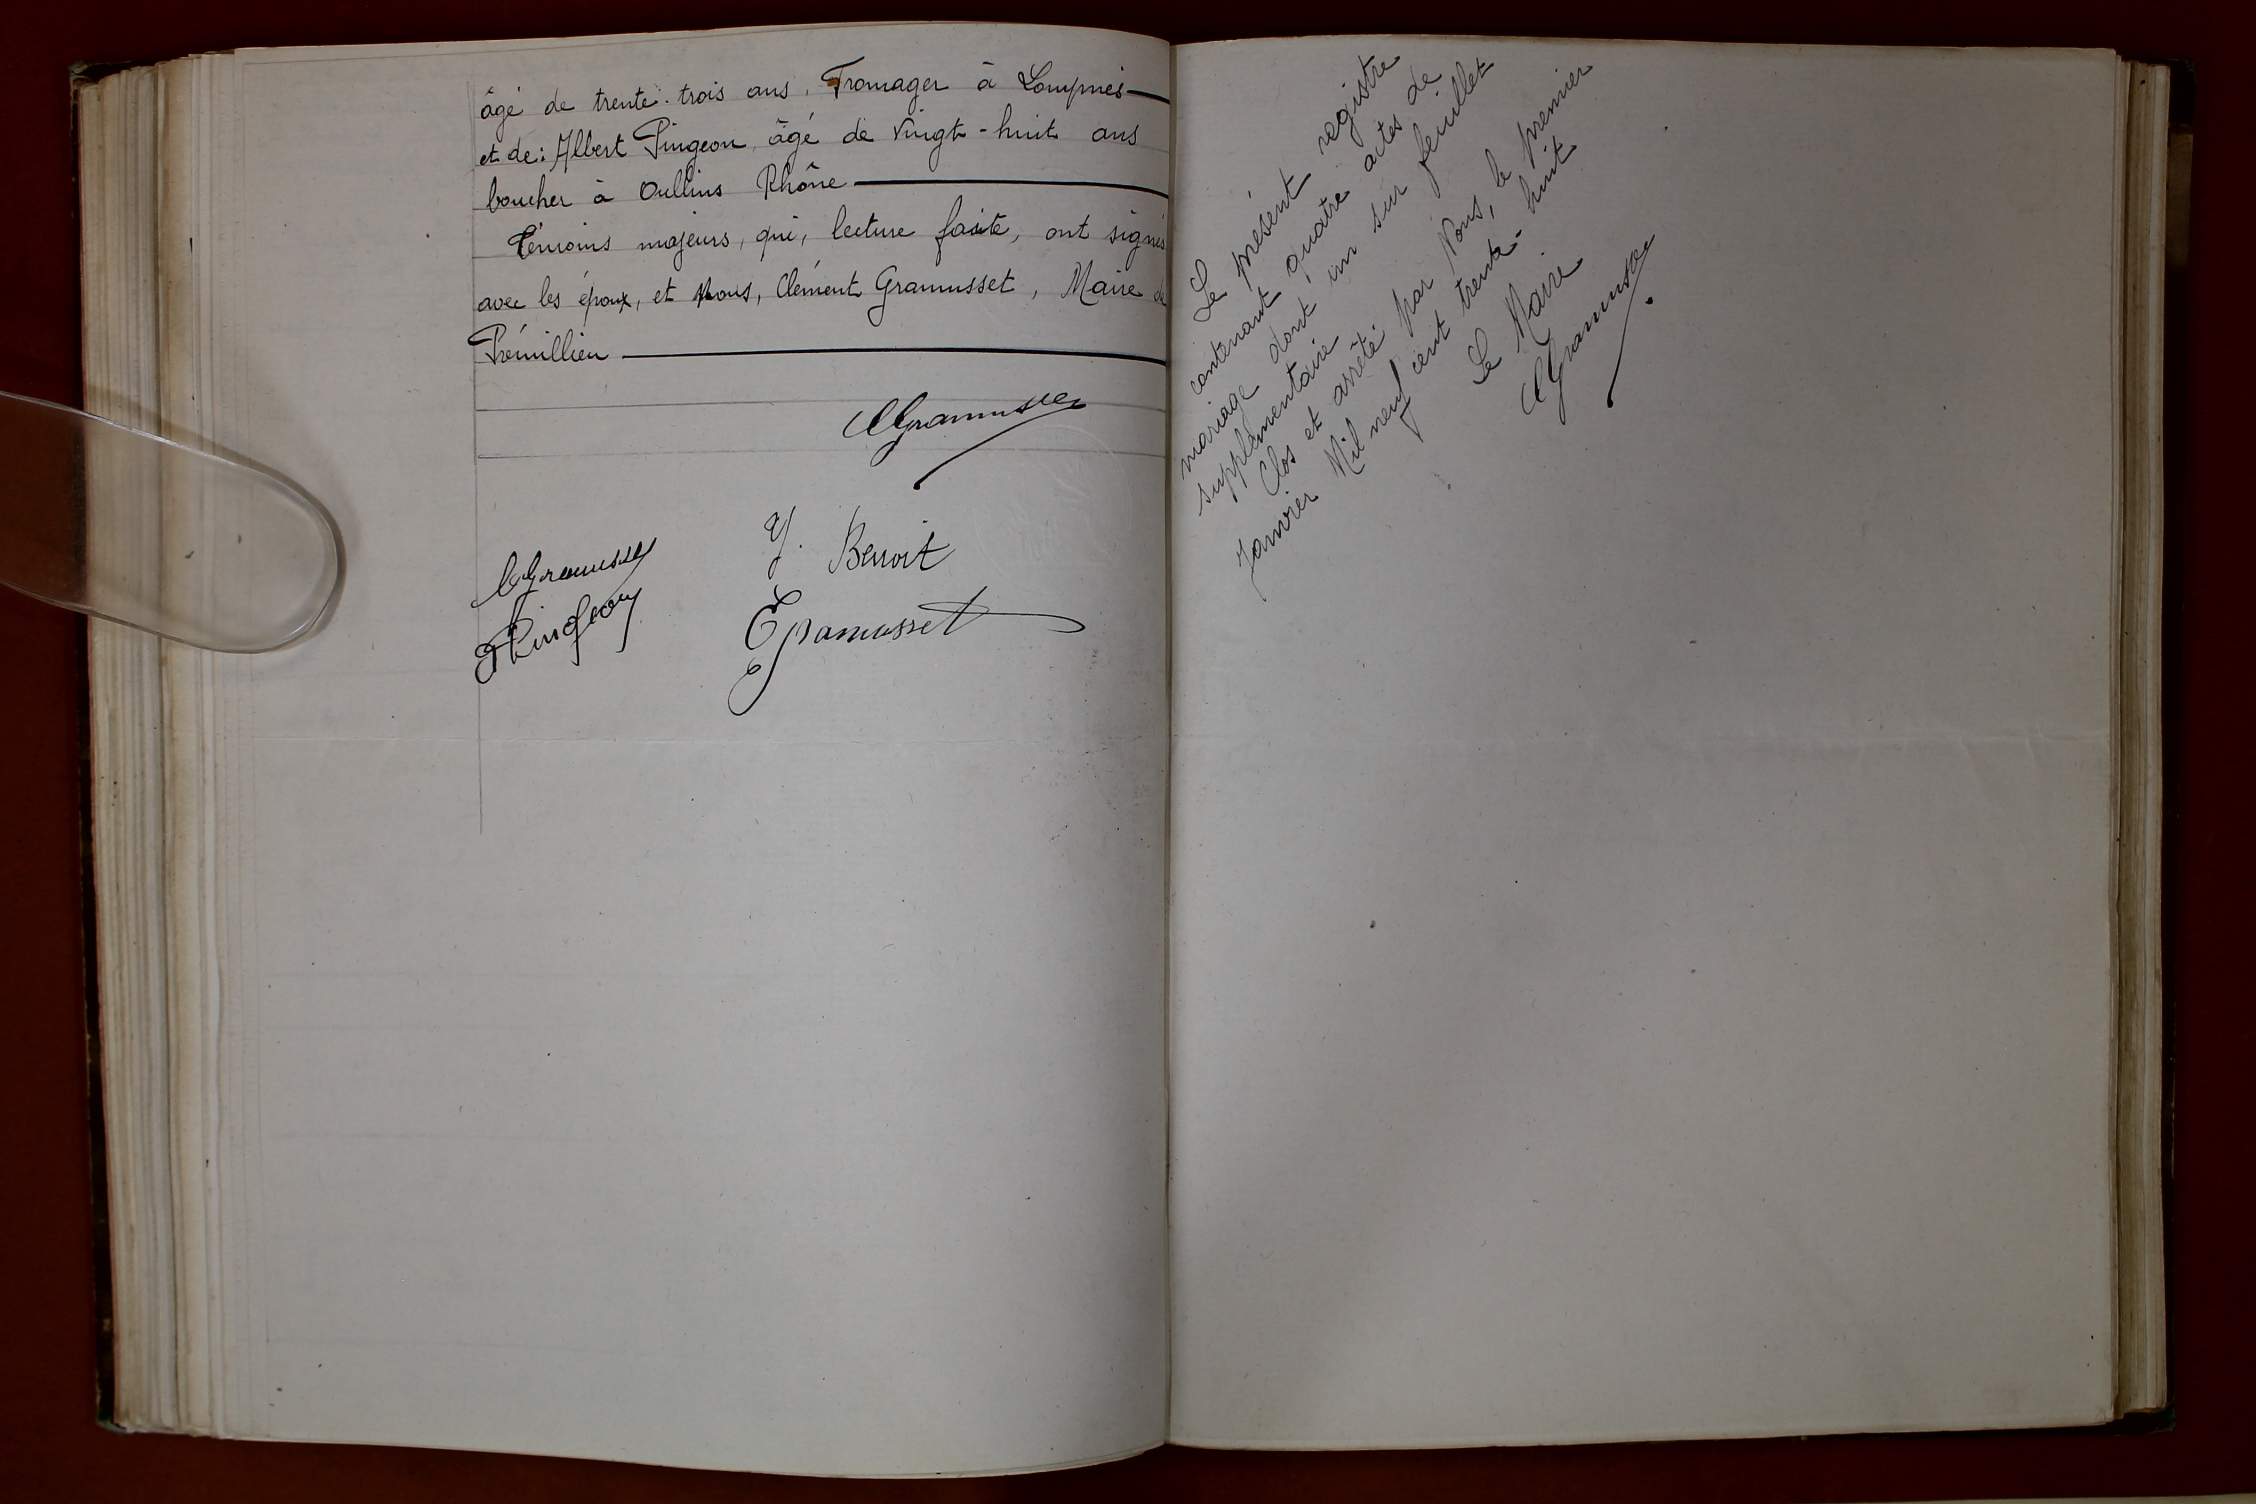 âgé de trente-trois ans, Fromager à Lompnès
et de: Albert Pingeon, âgé de vingt-huit ans
boucher à Oullins Rhône
Témoins majeurs, qui, lecture faite, ont signés
avec les époux, et Nous, Clément Gramusset, Maire de
Prémillieu
CGramusset
CGramusset
Y. Benoit
Pingeon
Gramusset
Le présent registre
contenant quatre actes de
mariage dont un sur feuillet
supplémentaire
Clos et arrêté par Nous, le premier
Janvier Mil neuf cent trente-huit
Le Maire
CGramusset